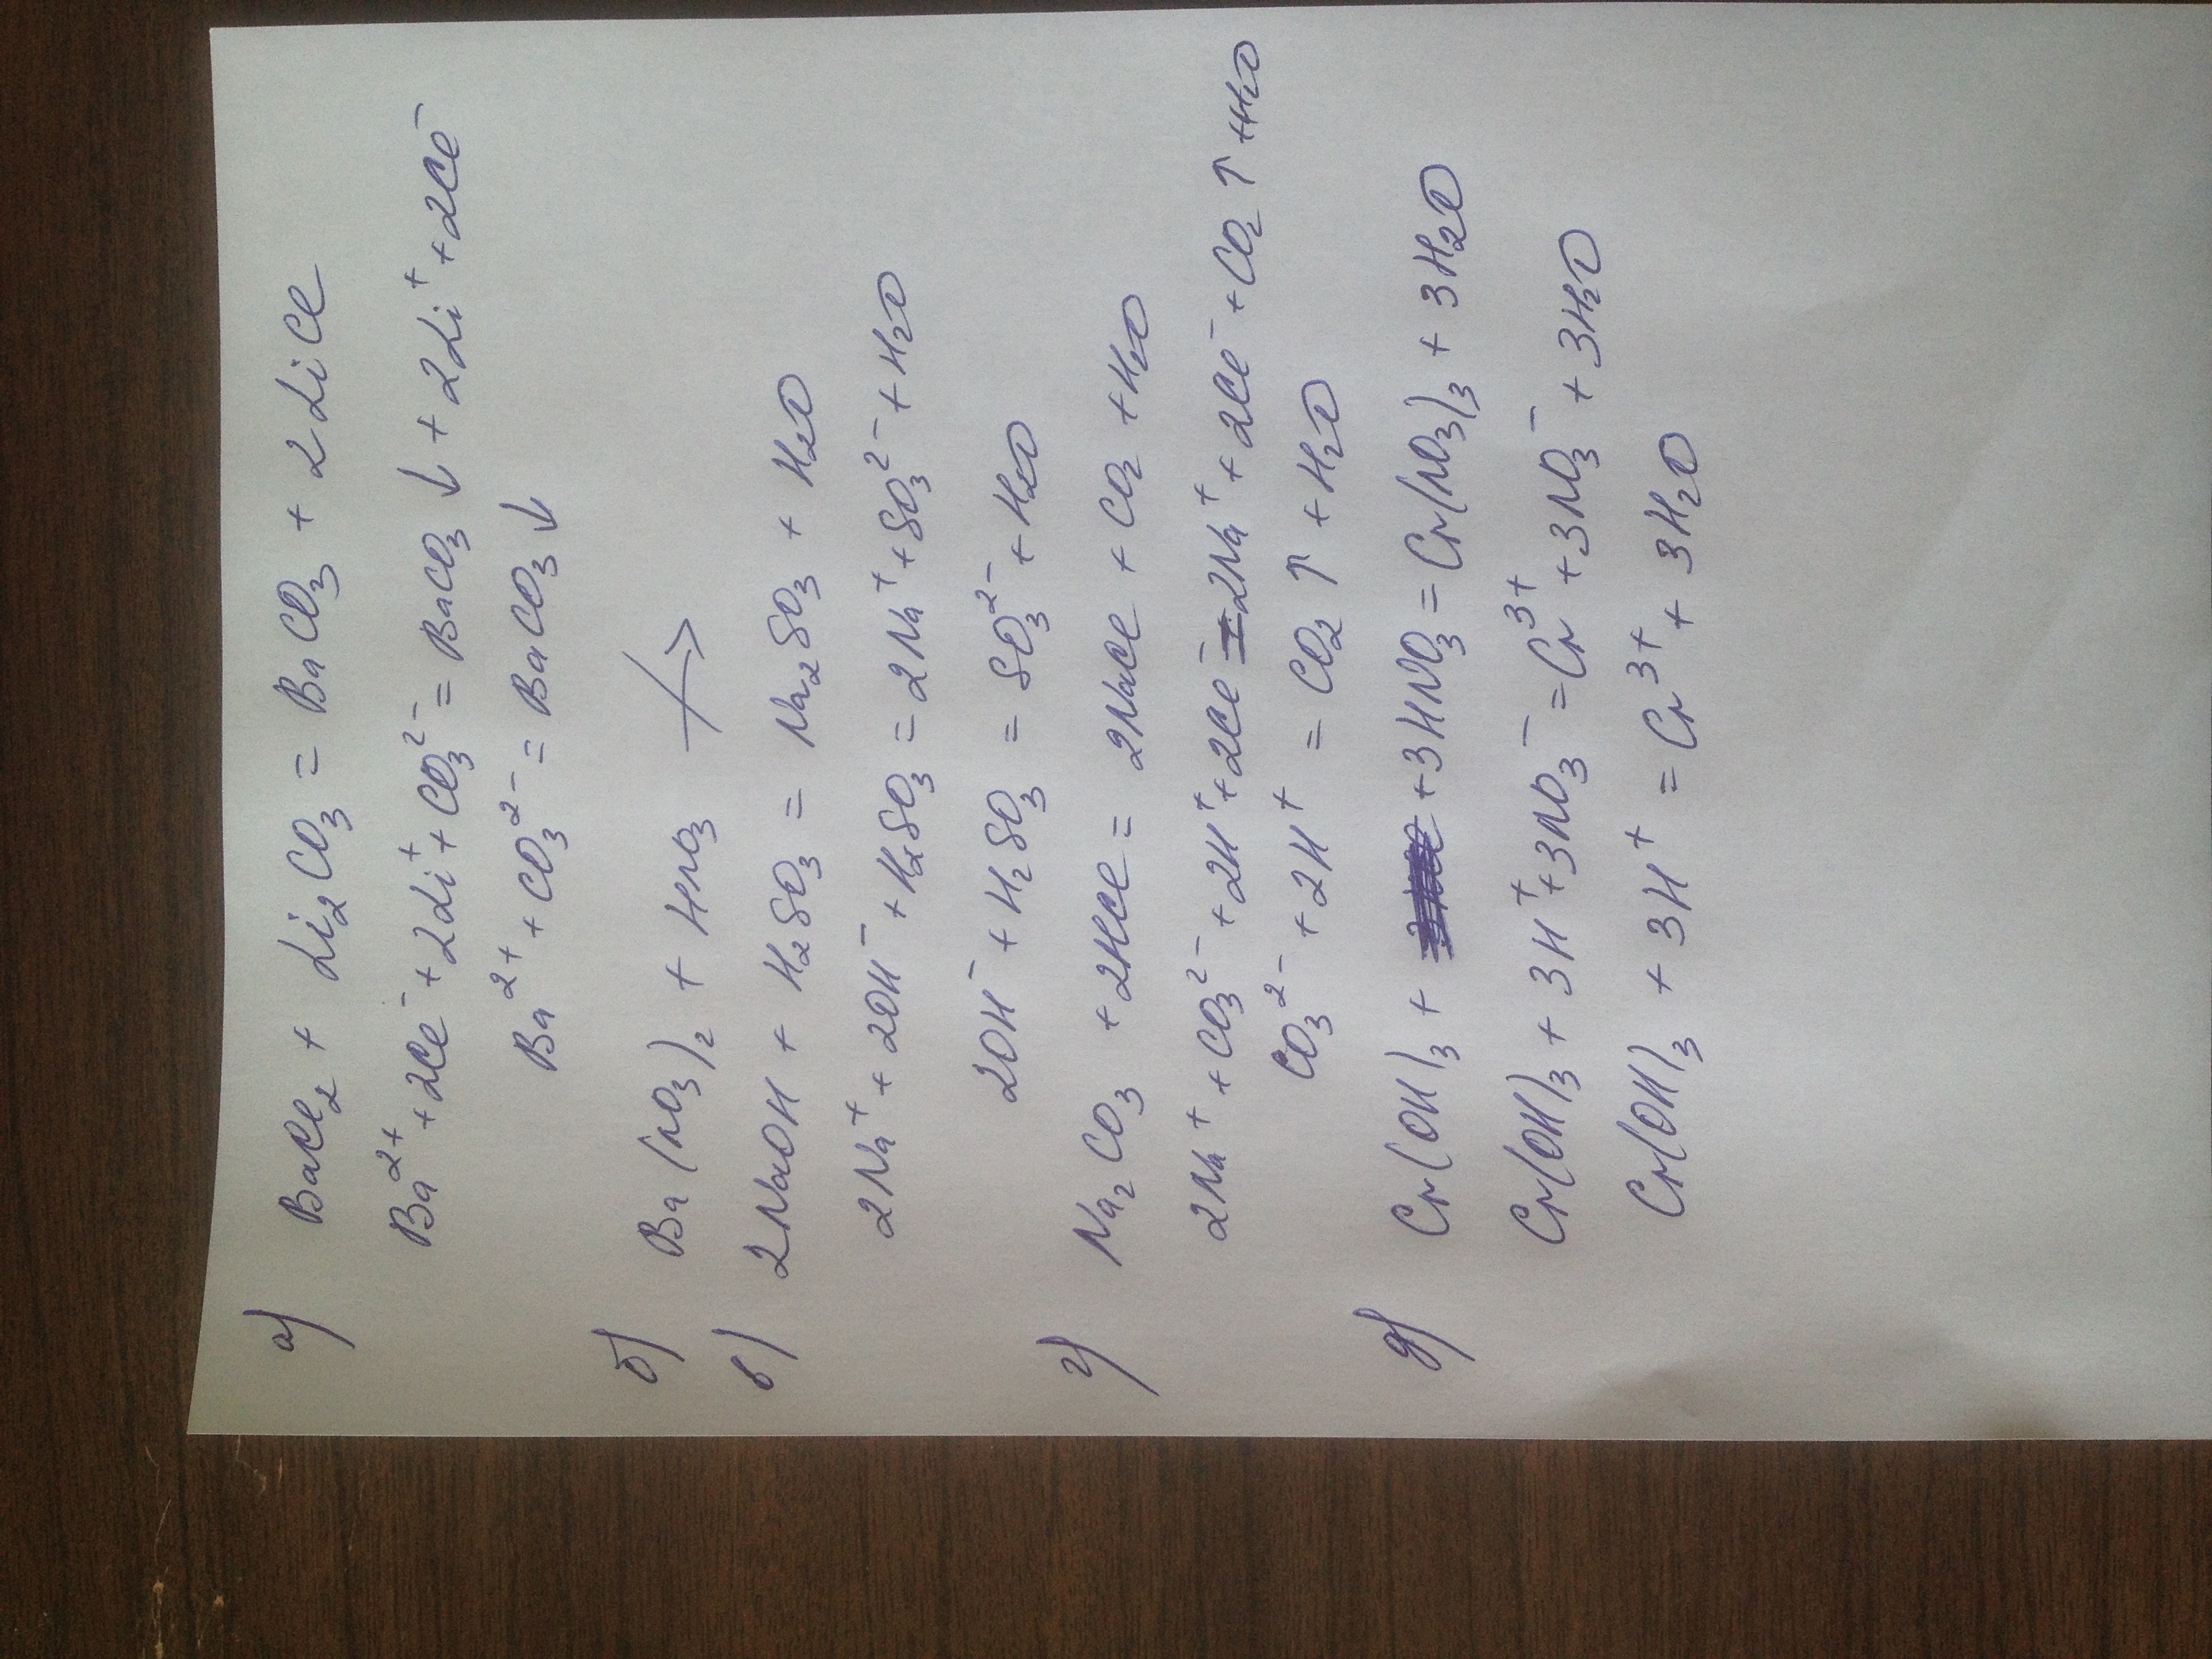 а) BaCl₂ + Li₂CO₃ = BaCO₃ + 2LiCl
Ba²⁺ + 2Cl⁻ + 2Li⁺ + CO₃²⁻ = BaCO₃ ↓ + 2Li⁺ + 2Cl⁻
Ba²⁺ + CO₃²⁻ = BaCO₃ ↓
б) Ba(NO₃)₂ + HNO₃ ↛
в) 2NaOH + H₂SO₃ = Na₂SO₃ + H₂O
2Na⁺ + 2OH⁻ + H₂SO₃ = 2Na⁺ + SO₃²⁻ + H₂O
2OH⁻ + H₂SO₃ = SO₃²⁻ + H₂O
г) Na₂CO₃ + 2HCl = 2NaCl + CO₂ + H₂O
2Na⁺ + CO₃²⁻ + 2H⁺ + 2Cl⁻ = 2Na⁺ + 2Cl⁻ + CO₂ ↑ + H₂O
CO₃²⁻ + 2H⁺ = CO₂ ↑ + H₂O
д) Cr(OH)₃ + + 3HNO₃ = Cr(NO₃)₃ + 3H₂O
Cr(OH)₃ + 3H⁺ + 3NO₃⁻ = Cr³⁺ + 3NO₃⁻ + 3H₂O
Cr(OH)₃ + 3H⁺ = Cr³⁺ + 3H₂O